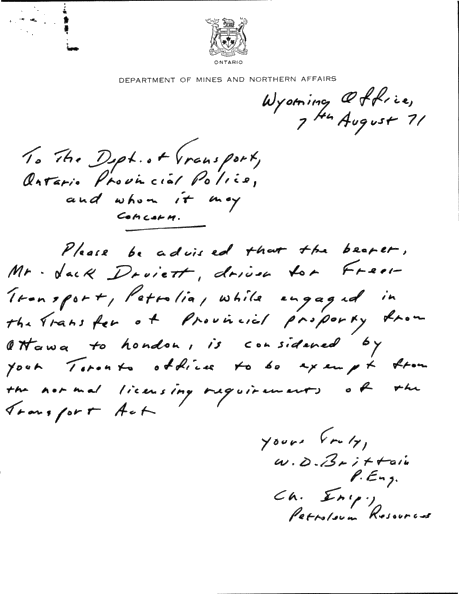 ONTARIO
DEPARTMENT OF MINES AND NORTHERN AFFAIRS
Wyoming Office,
7th August 71
To The Dept. of Transport,
Ontario Provincial Police,
and whom it may
concern.
Please be advised that the bearer,
Mr. Jack Druiett, driver for
Transport, Petrolia, while engaged in
the Transfer of Provincial property from
Ottawa to London, is considered by
your Toronto office to be exempt from
the normal licensing requirements of the
Transport Act
Yours Truly,
W.D. Brittain
P. Eng.
Ch. Insp.,
Petroleum Resources